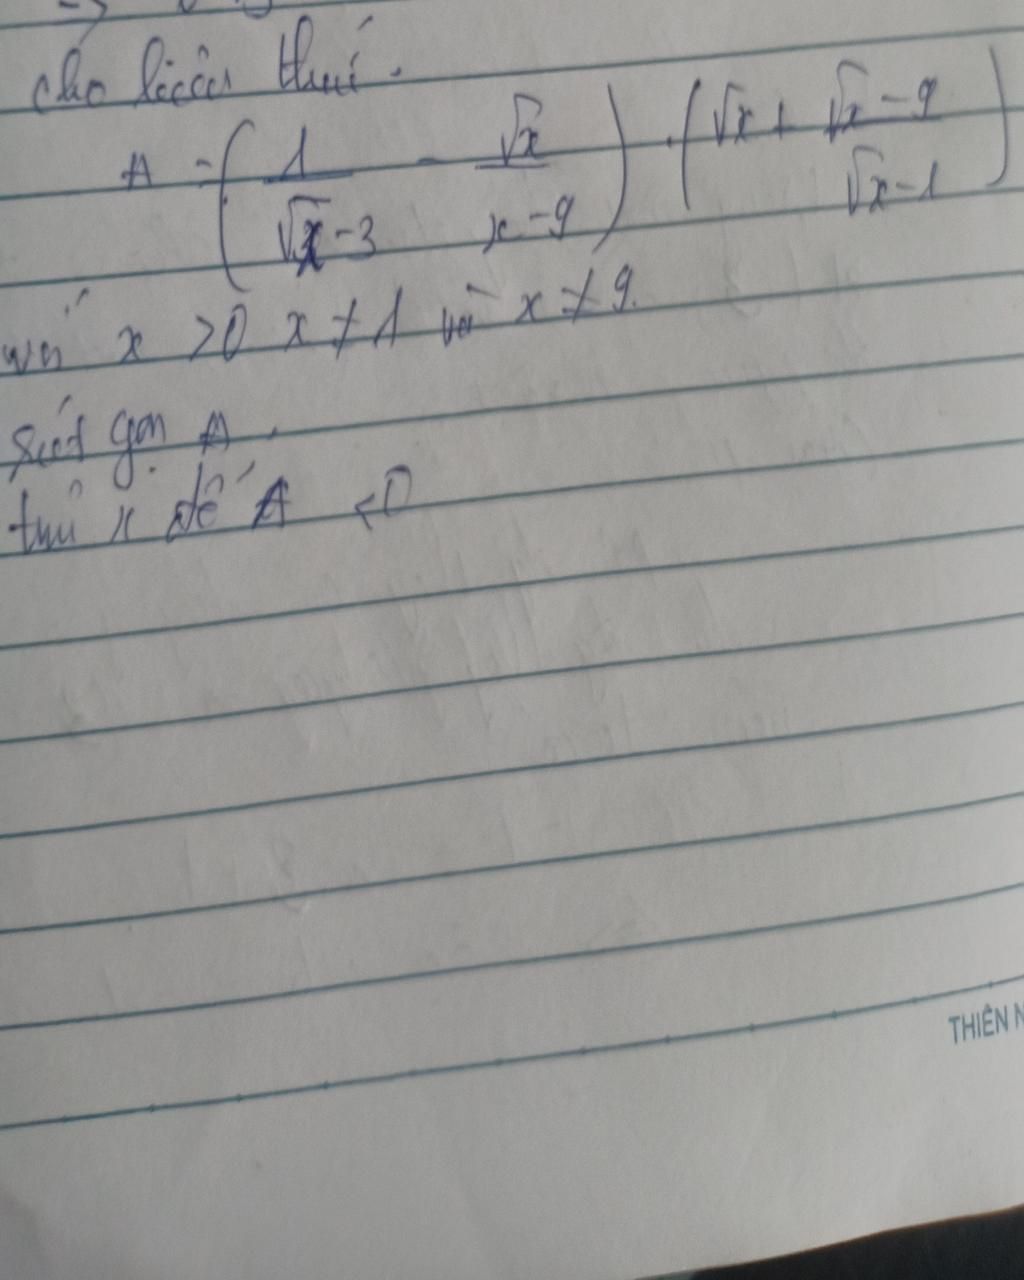 cho biểu thức.
A = ( 1 / (√x - 3) - √x / (x - 9) ) . ( √x + (√x - 9) / (√x - 1) )
với x > 0 x ≠ 1 và x ≠ 9.
rút gọn A.
tìm x để A < 0
THIÊN N